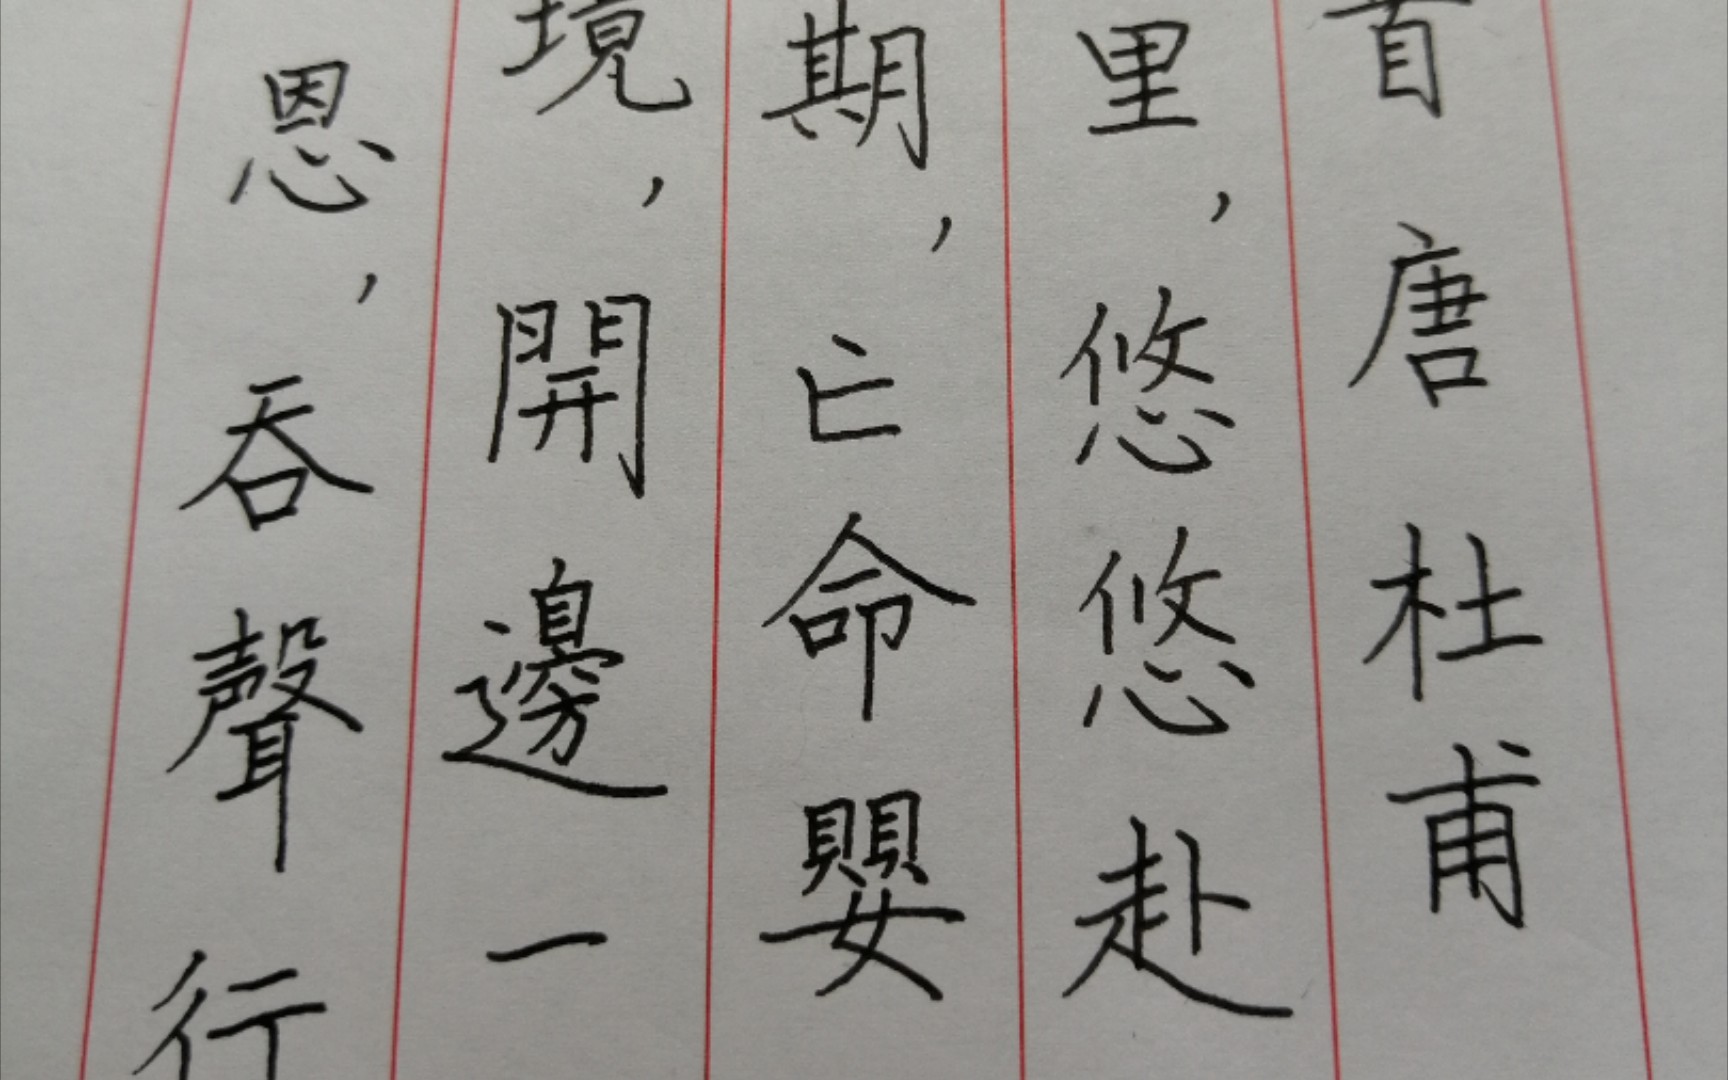 首唐杜甫
里，悠悠赴
期，亡命嬰
境，開邊一
恩，吞聲行